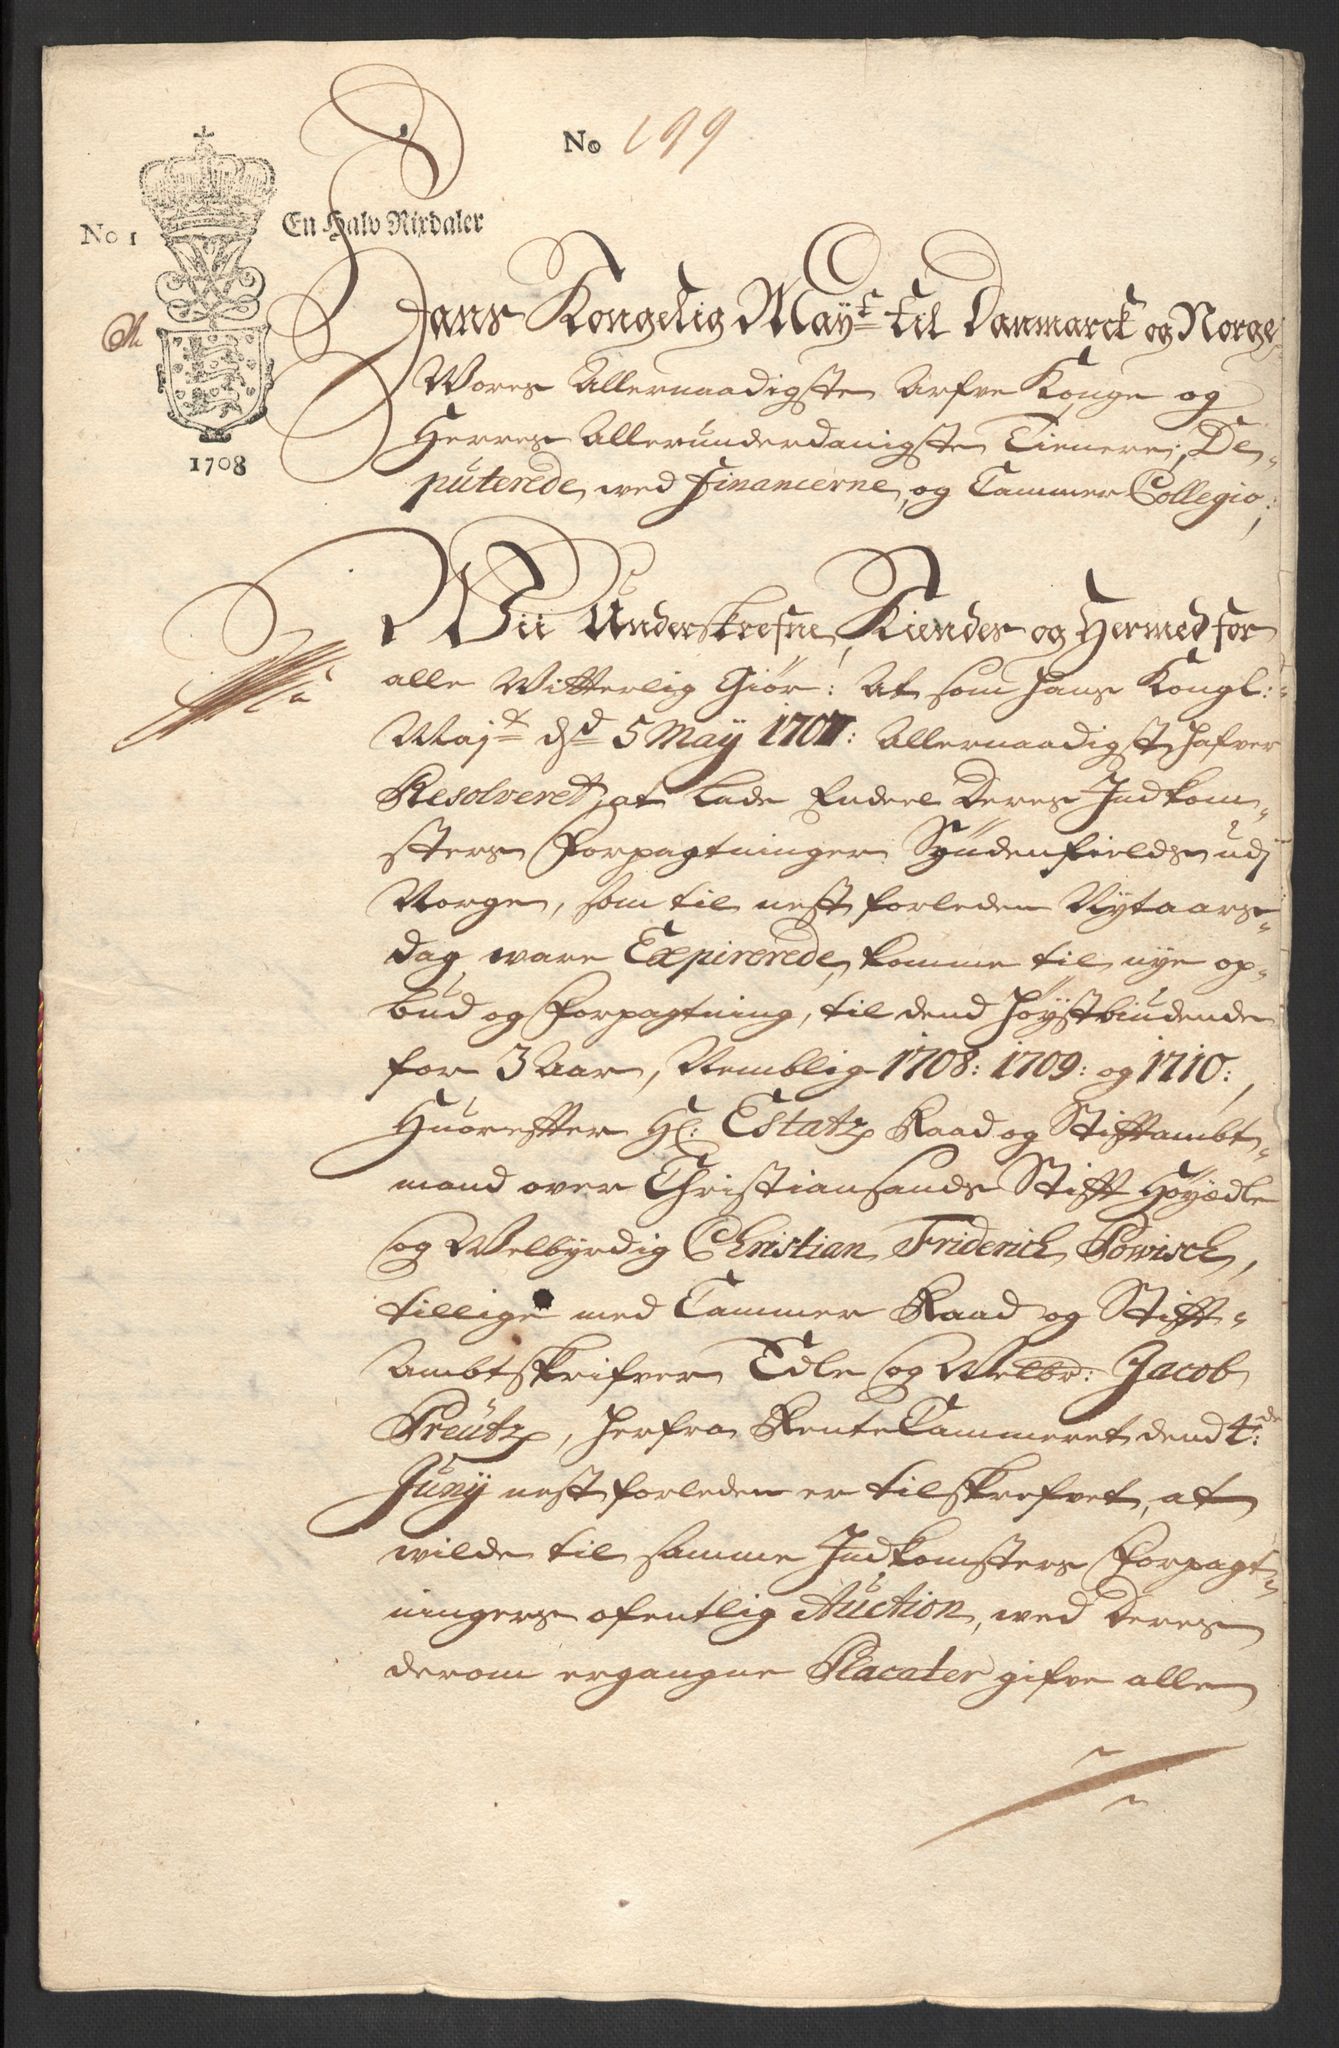 No 199
No 1
En Halv Rixdaler
1708
Hans Kongelig Mayt til Danmarck og Norge,
Wores Allernaadigste Arfve Konge og
Herres Allerunderdanigste Tienere, De-
puterede wed Financerne, og Cammer Collegio;
Wii Underskrefne, Kiender og Hermed for
alle Witterlig Giør: At som Hans Kongl:
Majt dd 5 May 1707: Allernaadigst Hafver
Resolveret, at lade Endeel Deres Indkom-
sters Forpagtninger Syndenfields udj
Norge, som til nest forleden Nytaars-
dag ware Expirerede, komme til nye op-
bud og Forpagtning, til dend Høystbiudende
for 3 Aar, Nemblig 1708: 1709: og 1710:,
Huorefter Hr: Estatz Raad og Stiftambt-
mand over Christiansands Stift Høyædle
og Welbyrdig Christian Friderich Powisch,
tillige med Cammer Raad og Stift-
Ambtskrifver Edle og Welbr: Jacob
Preutz, herfra RenteCammeret dend 4de:
Juny nest forleden er tilskrefvet, at
wilde til samme Indkomsters Forpagt-
ningers ofentlig Auction, wed Deres
derom ergangne Placater gifve alle